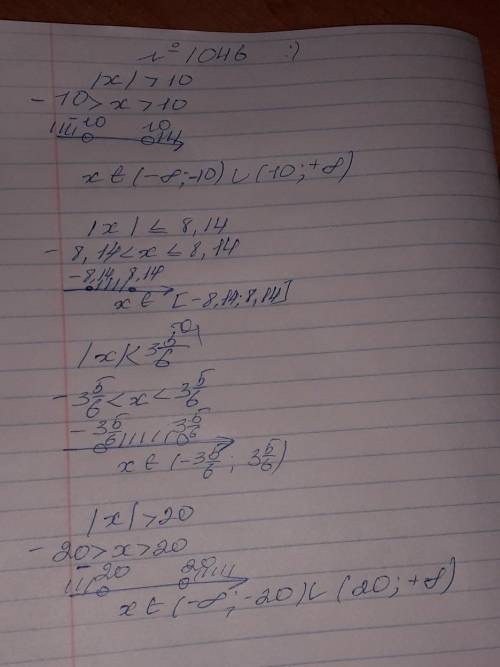 №1046 :)
|x|>10
-10>x>10
-10 10
x∈(-∞;-10)∪(10;+∞)
|x|≤8,14
-8,14<x≤8,14
-8,14 8,14
x∈[-8,14;8,14]
|x|<3 5/6
-3 5/6<x<3 5/6
-3 5/6 3 5/6
x∈(-3 5/6; 3 5/6)
|x|>20
-20>x>20
-20 20
x∈(-∞;-20)∪(20;+∞)